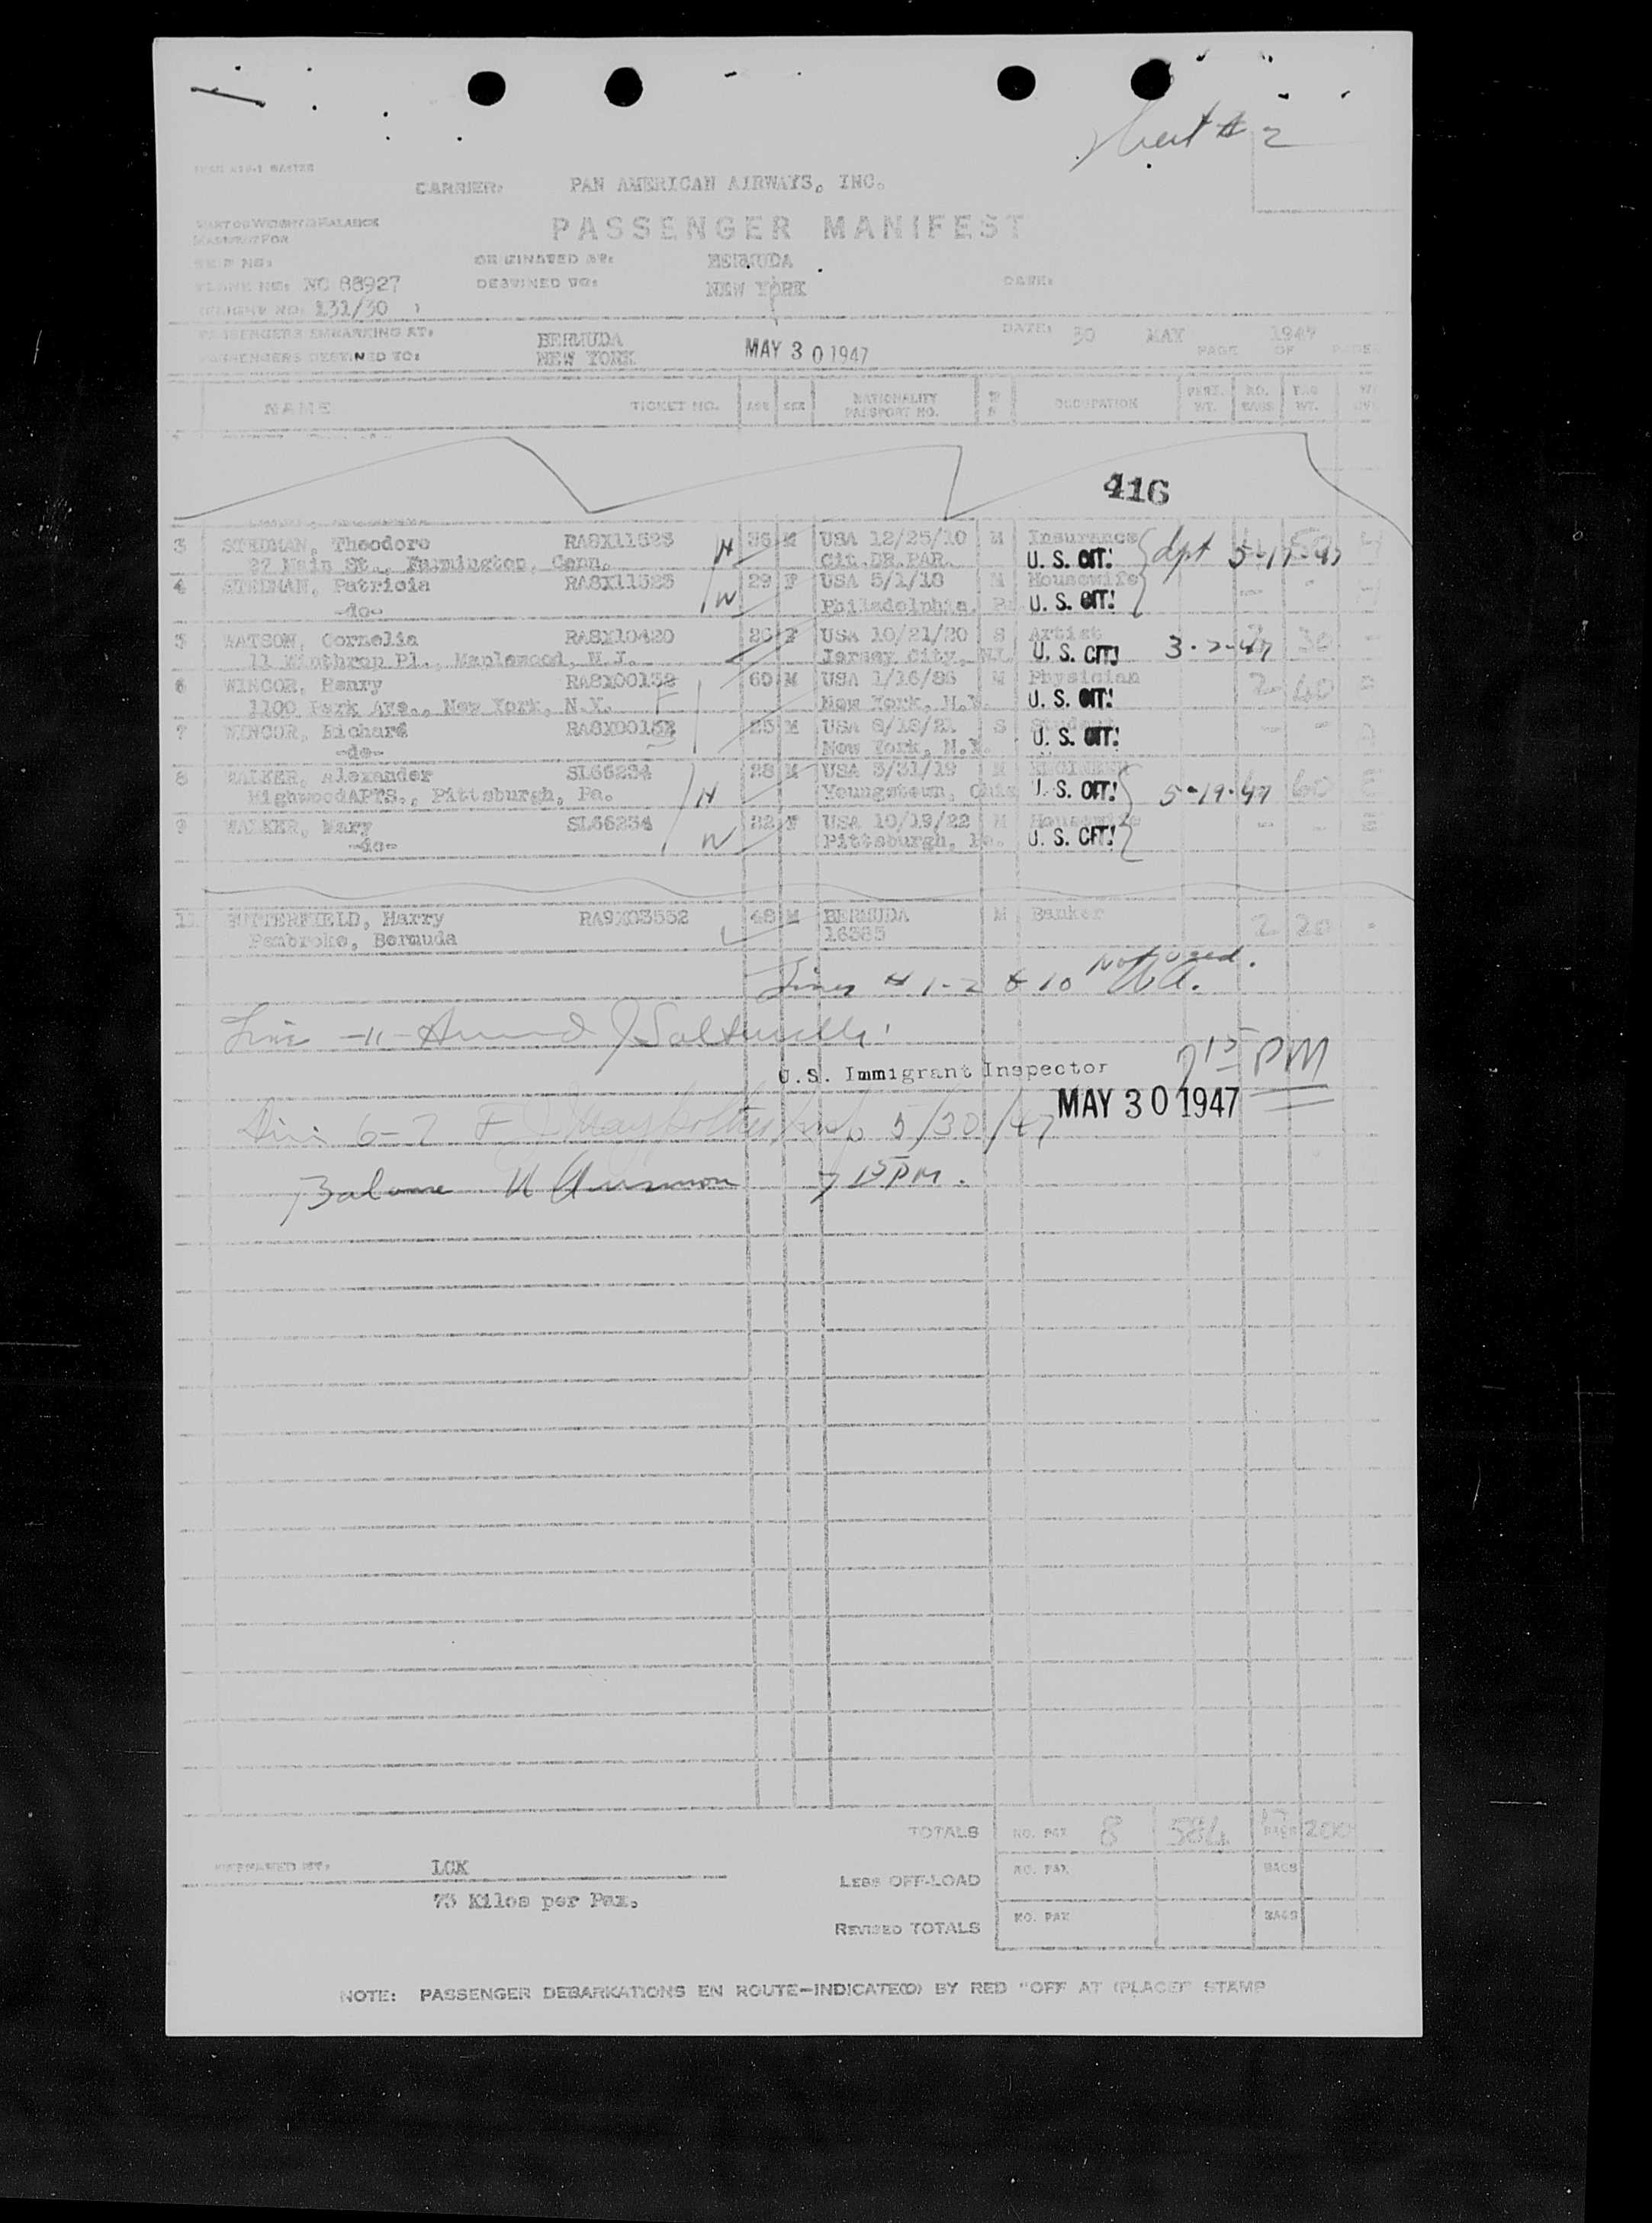 Sheet # 2
CARRIER: PAN AMERICAN AIRWAYS, INC.
PASSENGER MANIFEST
PART OF WEIGHT & BALANCE
MANIFEST FOR
TRIP NO:
ORIGINATED AT: BERMUDA
PLANE NO: NC 88927 DESTINED TO: NEW YORK
FLIGHT NO: 131/30
PASSENGERS EMBARKING AT: BERMUDA DATE: 30 MAY 1947
PASSENGERS DESTINED TO: NEW YORK MAY 30 1947 PAGE OF PAGES
NAME TICKET NO. AGE SEX NATIONALITY PASSPORT NO. OCCUPATION PERS. WT. NO. BAGS BAG WT.
416
3 STEDMAN, Theodore RA8X11523 H 36 M USA 12/25/10 M Insurance dpt 5-17-47
27 Main St., Farmington, Conn. Cit.DR.PAR. U. S. CIT.
4 STEDMAN, Patricia RA8X11523 W 29 F USA 5/1/18 M Housewife
-do- Philadelphia, Pa U. S. CIT.
5 WATSON, Cornelia RA8X10420 26 F USA 10/21/20 S Artist 30
11 Winthrop Pl., Maplewood, N.J. Jersey City, NJ. U. S. CIT. 3-2-47
6 WINCOR, Henry RA8X00152 F 60 M USA 1/16/86 M Physician 2 60
1100 Park Ave., New York, N.Y. New York, N.Y. U. S. CIT.
7 WINCOR, Richard RA8X00152 S 25 M USA 8/18/21 S Student
-do- New York, N.Y. U. S. CIT.
8 WALKER, Alexander SL66234 H 28 M USA 3/31/19 M ENGINEER 60
HighwoodAPTS., Pittsburgh, Pa. Youngstown, Ohio U. S. CIT. 5-19-47
9 WALKER, Mary SL66234 W 22 F USA 10/19/22 M Housewife
-do- Pittsburgh, Pa. U. S. CIT.
11 BUTTERFIELD, Harry RA9X03552 48 M BERMUDA M Banker 2 20
Pembroke, Bermuda 16365
Lines # 1-2 & 10 Not Used.
Line -11-
U.S. Immigrant Inspector 7 15 PM
MAY 30 1947
6-7 5/30/47
Balance 7 15 PM.
TOTALS NO. PAX 8 584 17 BAGS 200
PREPARED BY: LCK
LESS OFF-LOAD NO. PAX BAGS
73 Kilos per Pax.
REVISED TOTALS NO. PAX BAGS
NOTE: PASSENGER DEBARKATIONS EN ROUTE—INDICATE(D) BY RED "OFF AT (PLACE)" STAMP